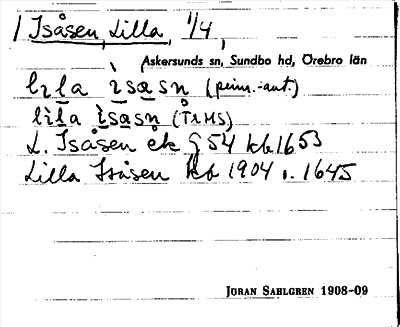 Isåsen, Lilla, 1/4,
Askersunds sn, Sundbo hd, Örebro län
lɩla ìsasn (prim.-aut.)
lìla ìsåsn (TrMS)
L. Isåsen ek G 54 kb 1653
Lilla Isåsen kb 1904 o. 1645
JÖRAN SAHLGREN 1908-09